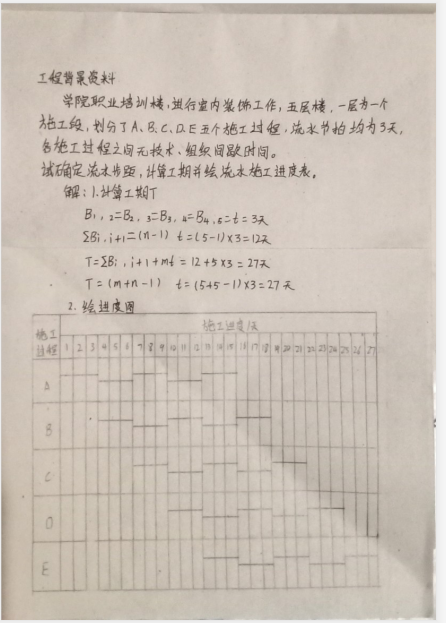 工程背景资料
学院职业培训楼,进行室内装饰工作,五层楼,一层为一个
施工段,划分了A、B、C、D、E五个施工过程,流水节拍均为3天,
各施工过程之间无技术、组织间歇时间。
试确定流水步距,计算工期并绘流水施工进度表。
解:1.计算工期T
B₁,₂=B₂,₃=B₃,₄=B₄,₅=t=3天
ΣBi,i+1=(n-1) t=(5-1)×3=12天
T=ΣBi,i+1+mt=12+5×3=27天
T=(m+n-1) t=(5+5-1)×3=27天
2.绘进度图
施工过程 施工进度/天
1 2 3 4 5 6 7 8 9 10 11 12 13 14 15 16 17 18 19 20 21 22 23 24 25 26 27
A
B
C
D
E